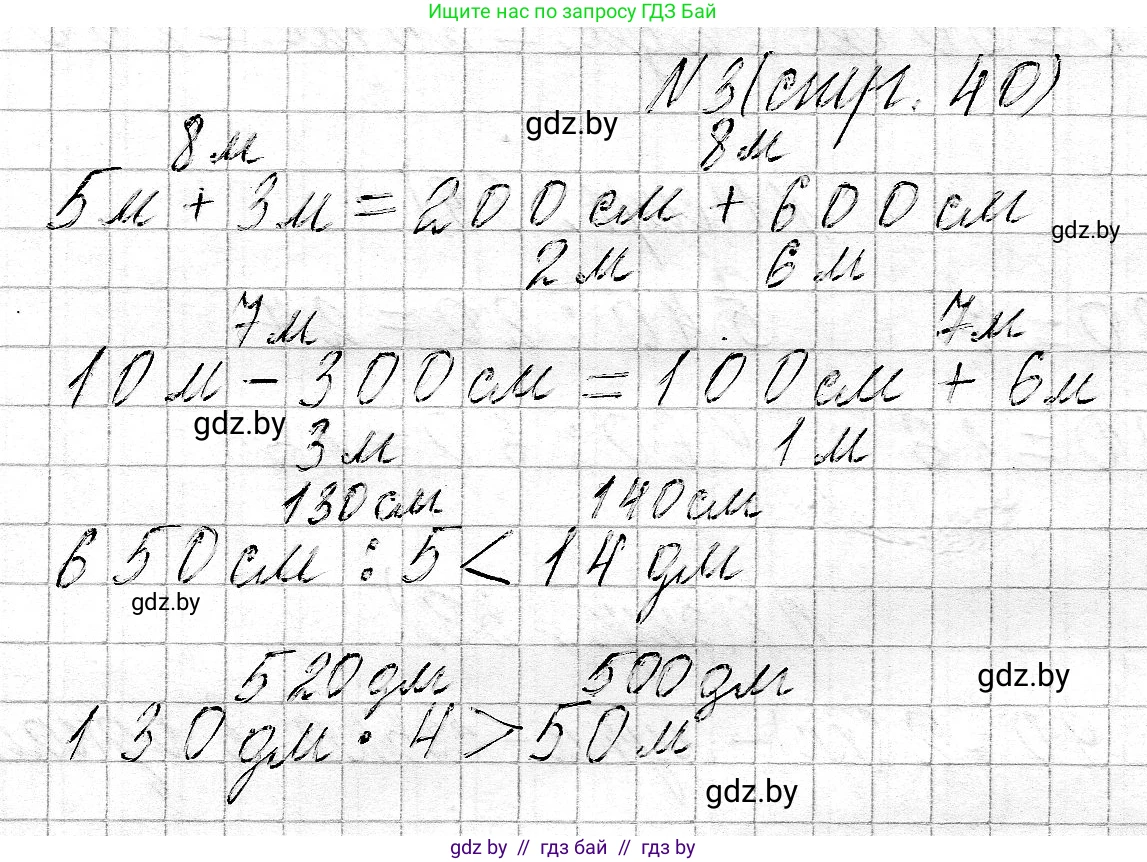 Ищите нас по запросу ГДЗ Бай
N 3 (стр. 40)
gdz.by
8 м 8 м
5 м + 3 м = 200 см + 600 см
gdz.by
2 м 6 м
7 м 7 м
10 м - 300 см = 100 см + 6 м
gdz.by
3 м 1 м
130 см 140 см
650 см : 5 < 14 дм
gdz.by
520 дм 500 дм
gdz.by
130 дм · 4 > 50 м
gdz.by
gdz by // гдз бай // gdz by